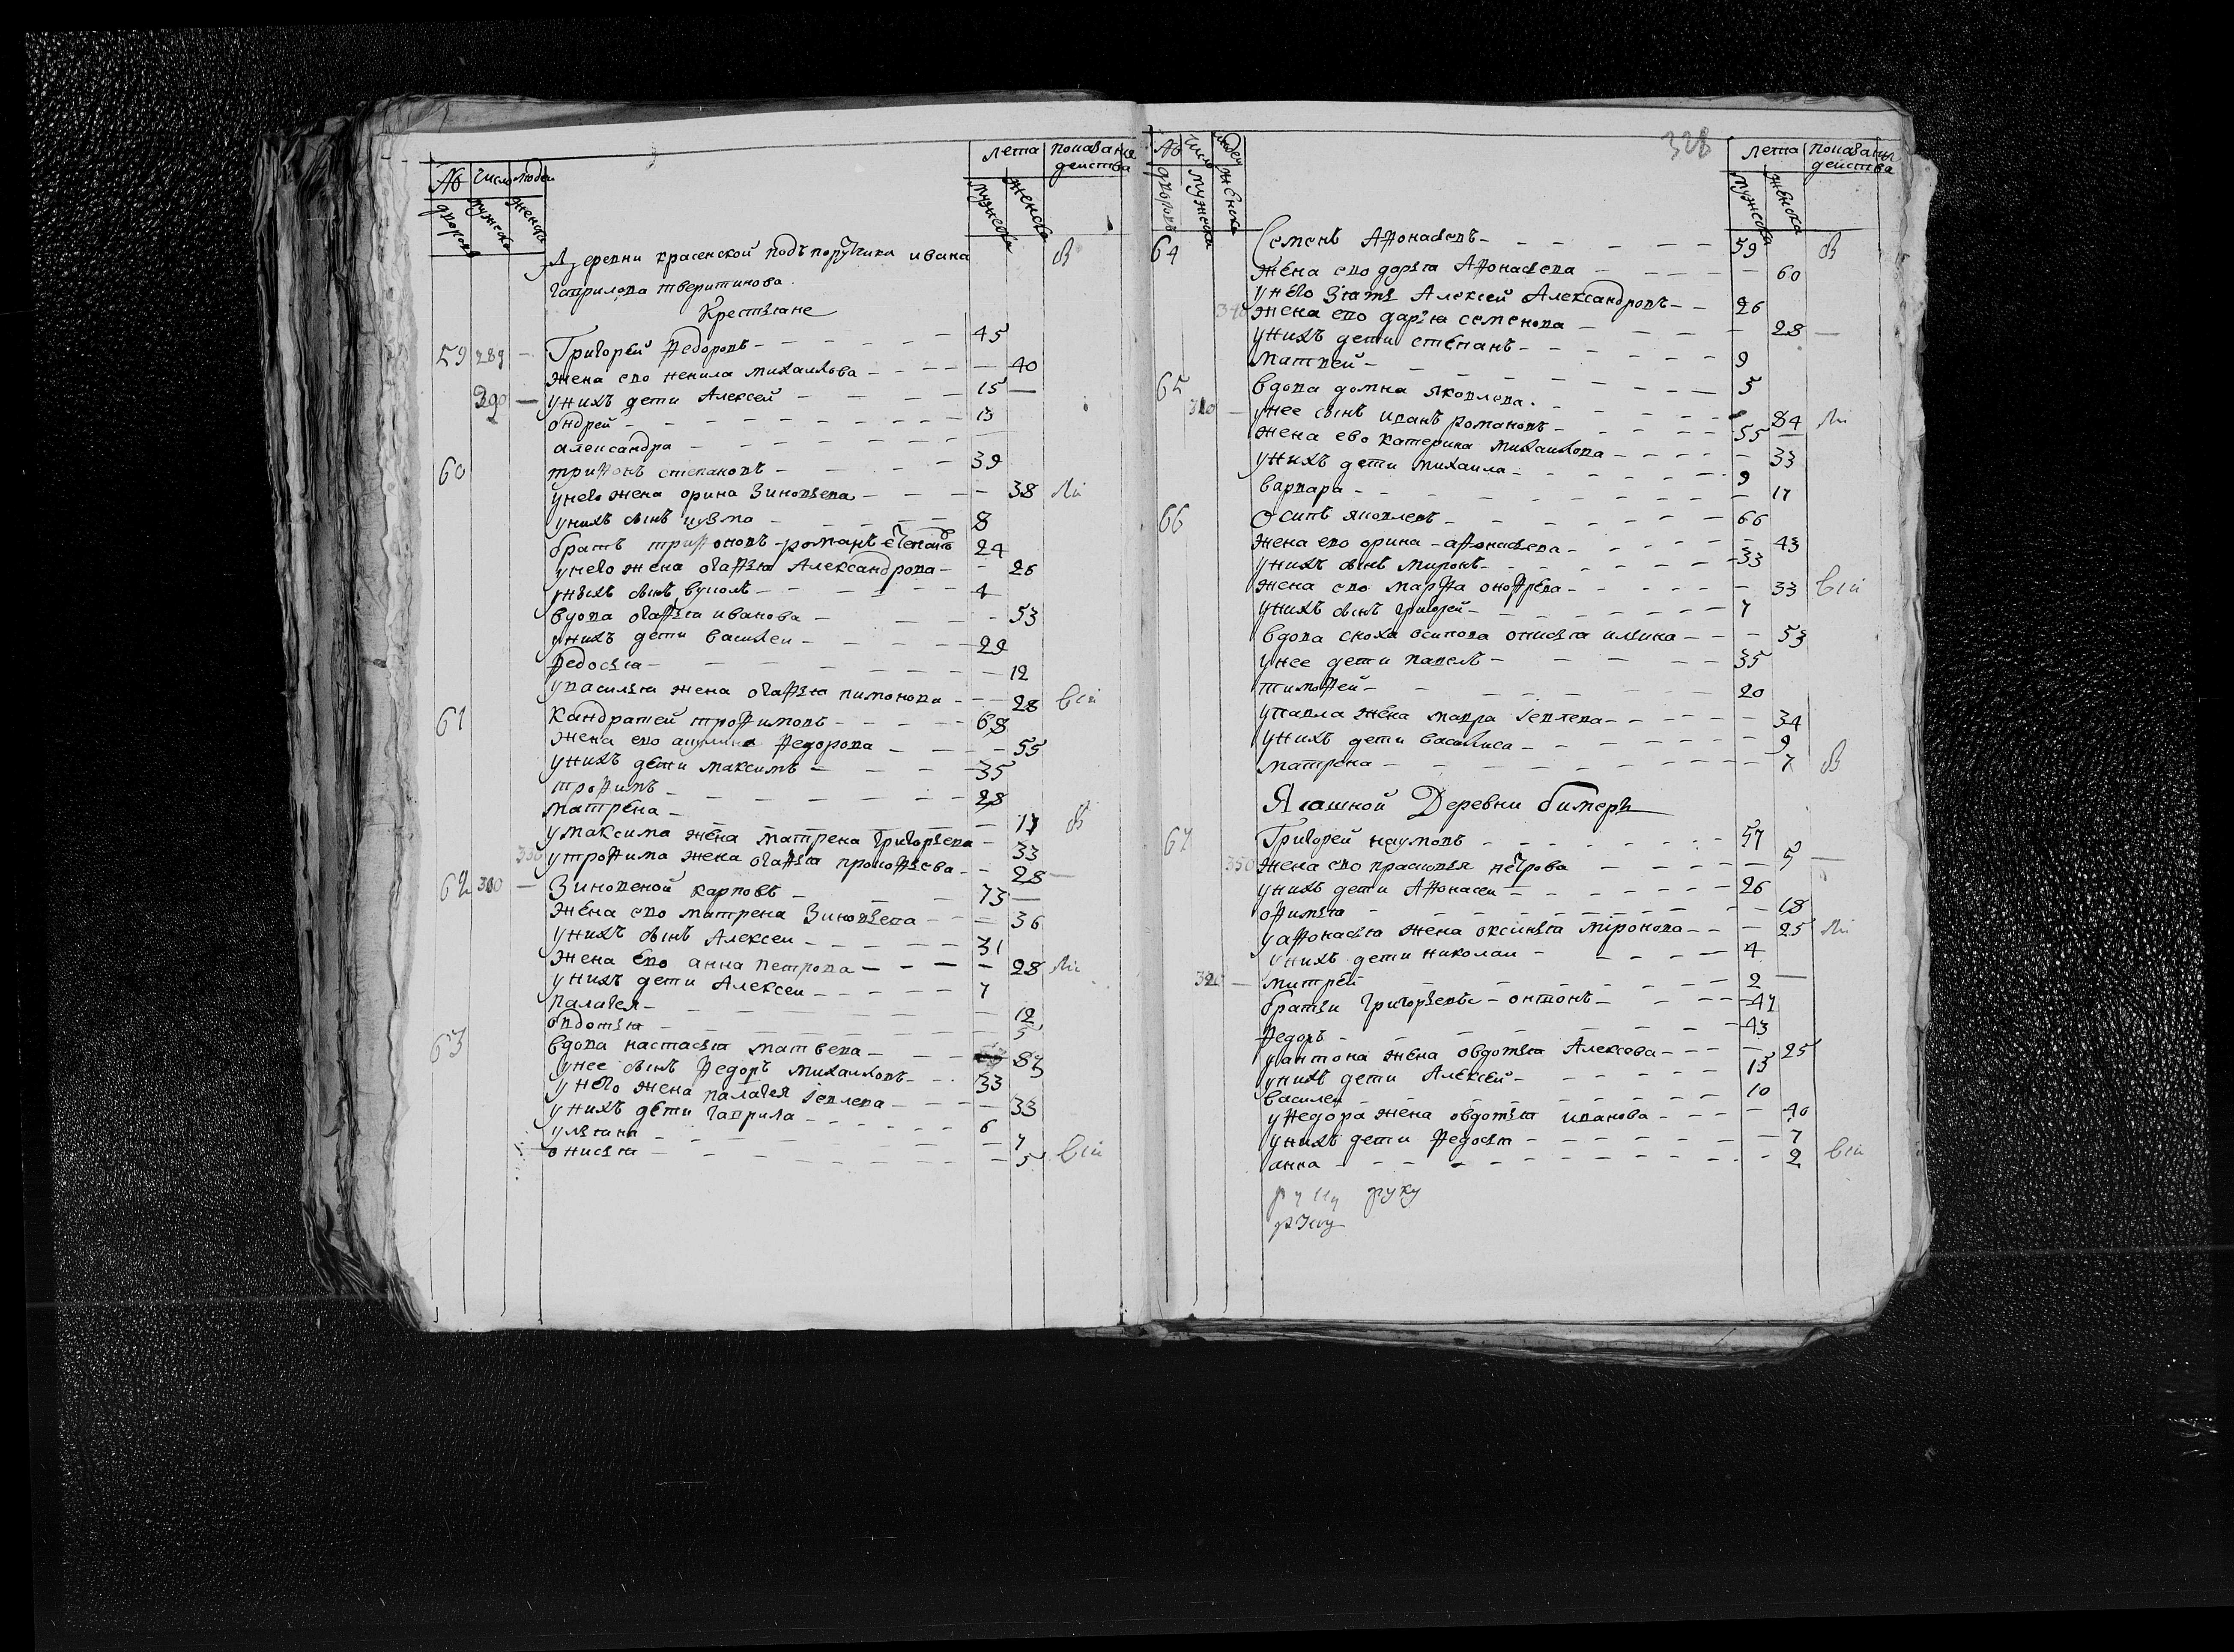 № Число людей лета показания
дворовъ мужеска женска мужеска женска действа
Деревни красенской подъ порутчика ивана
гаврилова тверитинова
Крестьяне
59 289 – Григорей Федоровъ – 45
жена ево ненила михаилова – 40
290 – у нихъ дети Алексей – 15 –
ондрей – 13
александра –
60 трифонъ степановъ – 39
у него жена орина Зиновьева – 38
у нихъ сынъ кузма – 8
братъ трифоновъ – романъ степановъ 24
у него жена огафья Александрова – 26
у нихъ сынъ вуколъ – 4
вдова огафья иванова – 53
у нихъ дети василеи – 29
федосья – 12
у василья жена огафья пимонова – 28
61 Кандратей трофимовъ – 68
жена ево акулина федорова – 55
у нихъ дети максимъ – 35
трофимъ – 28
матрена – 17
у максима жена матрена григорьева – 33
у трофима жена огафья прокофьева – 28 –
62 300 – Зиновеной карповъ – 73 –
жена ево матрена Зиновьева – 36
у нихъ сынъ Алексеи – 31
жена ево анна петрова – 28
у нихъ дети Алексеи – 7
палагея – 12
овдотья – 5
63 вдова настасья матвева – 87
у нее сынъ федоръ михаиловъ – 33
у него жена палагея iевлева – 33
у нихъ дети гаврила – 6
ульяна – 7
онисья – 5
328
№ число людей лета показаны
дворовъ мужеска женска мужеска женска действа
64 Семенъ Афонасьевъ – 59
жена ево дарья Афонасьева – 60
у него зять Алексей Александровъ – 26
340 жена ево дарья семенова – 28 –
у нихъ дети степанъ – 9
матвей – 5
65 вдова домна яковлева – 84
310 – у нее сынъ иванъ романовъ – 55 –
жена ево катерина михаилова – 33
у нихъ дети михаила – 9
варвара – 17
66 Осипъ яковлевъ – 66
жена ево орина – афонасьева – 43
у нихъ сынъ миронъ – 33
жена ево марфа онофрева – 33
у нихъ сынъ григорей – 7
вдова сноха осипова онисья ильина – 53
у нее дети павелъ – 35
тимофей – 20
у павла жена мавра iевлева – 34
у нихъ дети василиса – 9
матрена – 7
Ясашной Деревни бимеръ
67 Григорей наумовъ – 57
350 жена ево прасковья петрова – 5 –
у нихъ дети Афонасеи – 26
офимья – 18
у афонасья жена оксинья миронова – 25
у нихъ дети николаи – 4
320 – митрей – 2 –
братьи григорьевы – онтонъ – 47
федоръ – 43
у антона жена овдотья Алексева – 25
у нихъ дети Алексей – 15
василеи – 10
у федора жена овдотья иванова – 40
у нихъ дети федосья – 7
анна – 2
руку